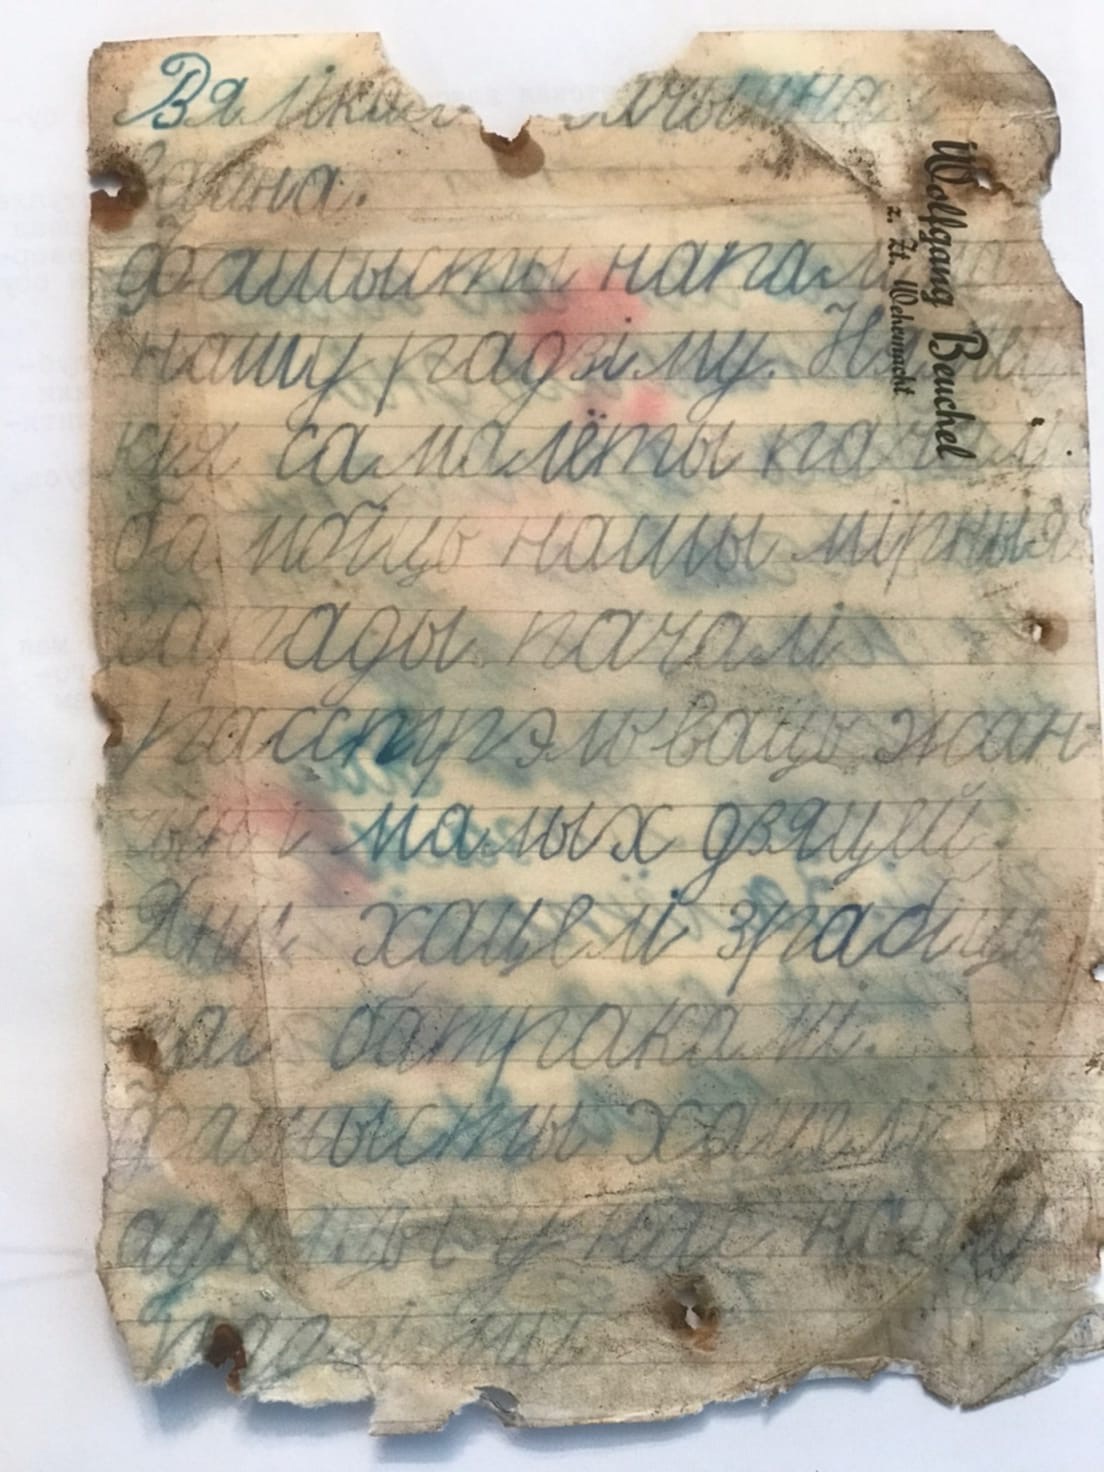 Вялікая
вайна.
Фашысты напалі
нашу радзіму. Нямец
кія самалёты пачалі
бамбіць нашы мірныя
гарады пачалі
расстрэльваць жан-
чын і малых дзяцей
Яны хацелі зрабіць
нас батракамі.
Фашысты хацелі
у нас нашу
Wolfgang Beuchel
z. Zt. Wehrmacht